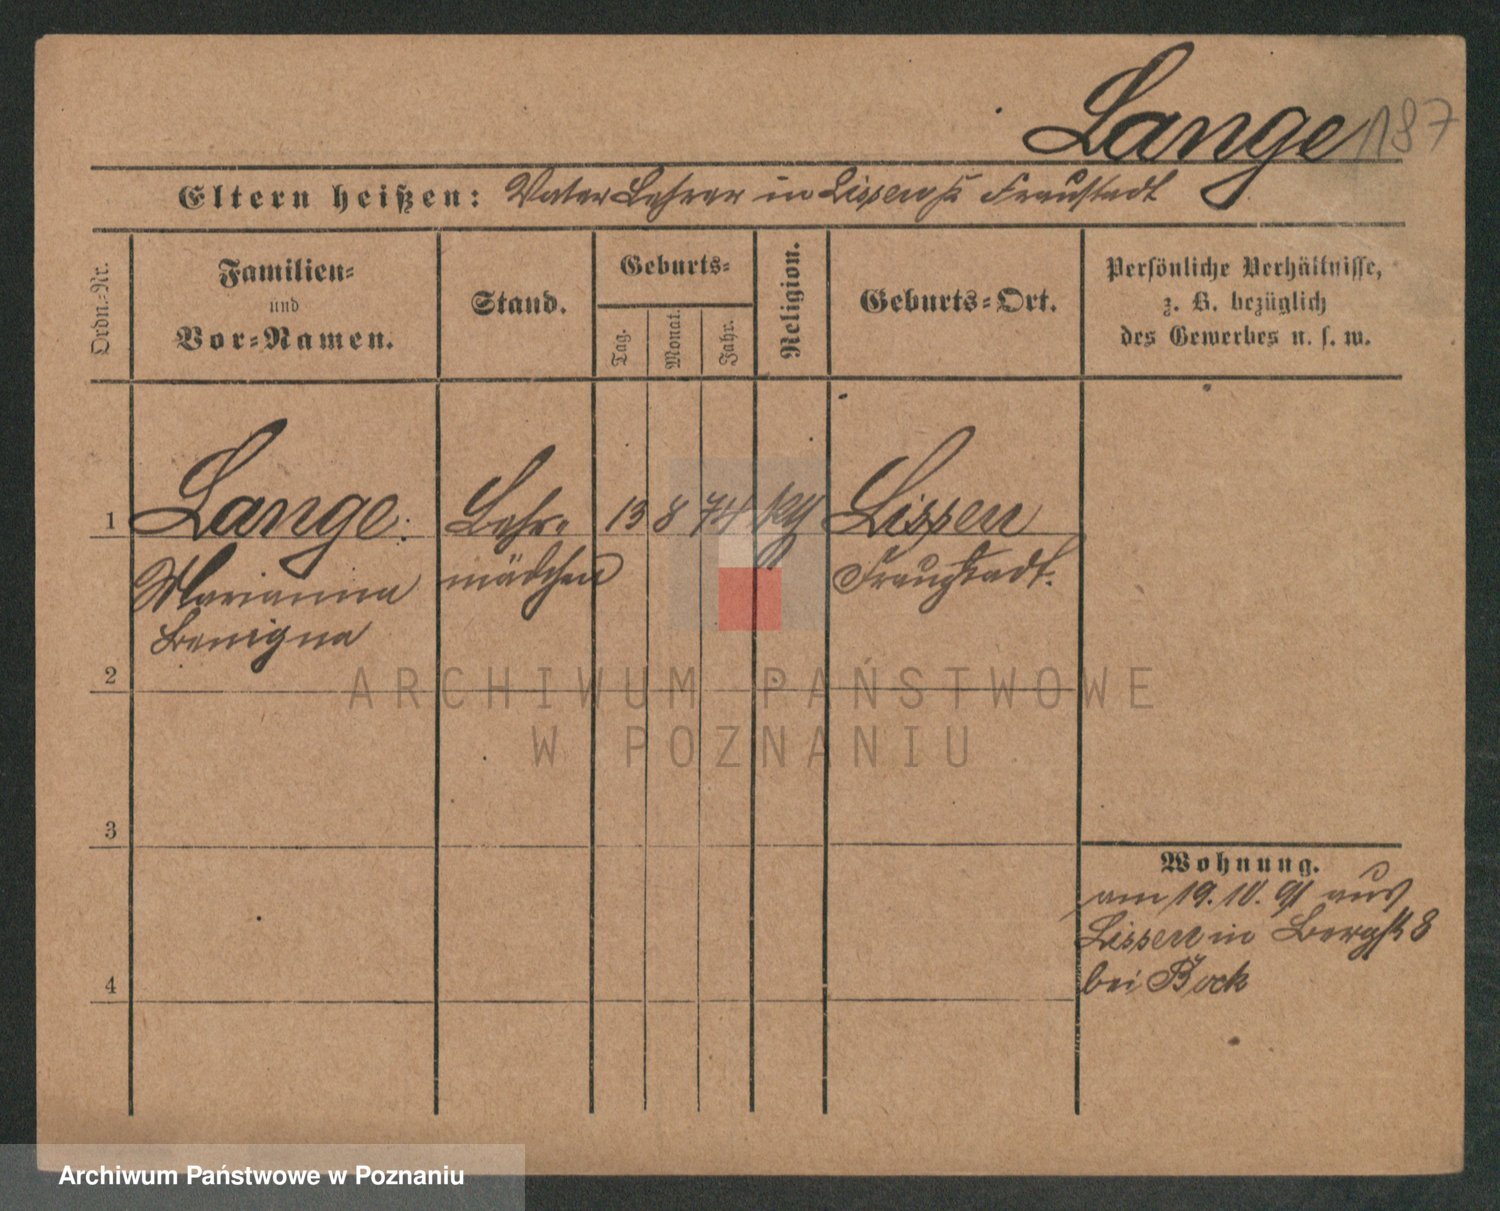 Lange 187
Eltern heißen: Vater Lehrer in Lissen Fraustadt
Ordn.-Nr.
Familien-
und
Vor-Namen.
Stand.
Geburts-
Tag.
Monat.
Jahr.
Religion.
Geburts-Ort.
Persönliche Verhältnisse,
z. B. bezüglich
des Gewerbes u. s. w.
1 Lange. Lehr- 13 8 74 Lissen
Marianna mädchen Fraustadt.
Benigna
2
ARCHIWUM PAŃSTWOWE
W POZNANIU
3
Wohnung.
am 19.10.91 aus
Lissen in Bergstr 8
4 bei Bock
Archiwum Państwowe w Poznaniu